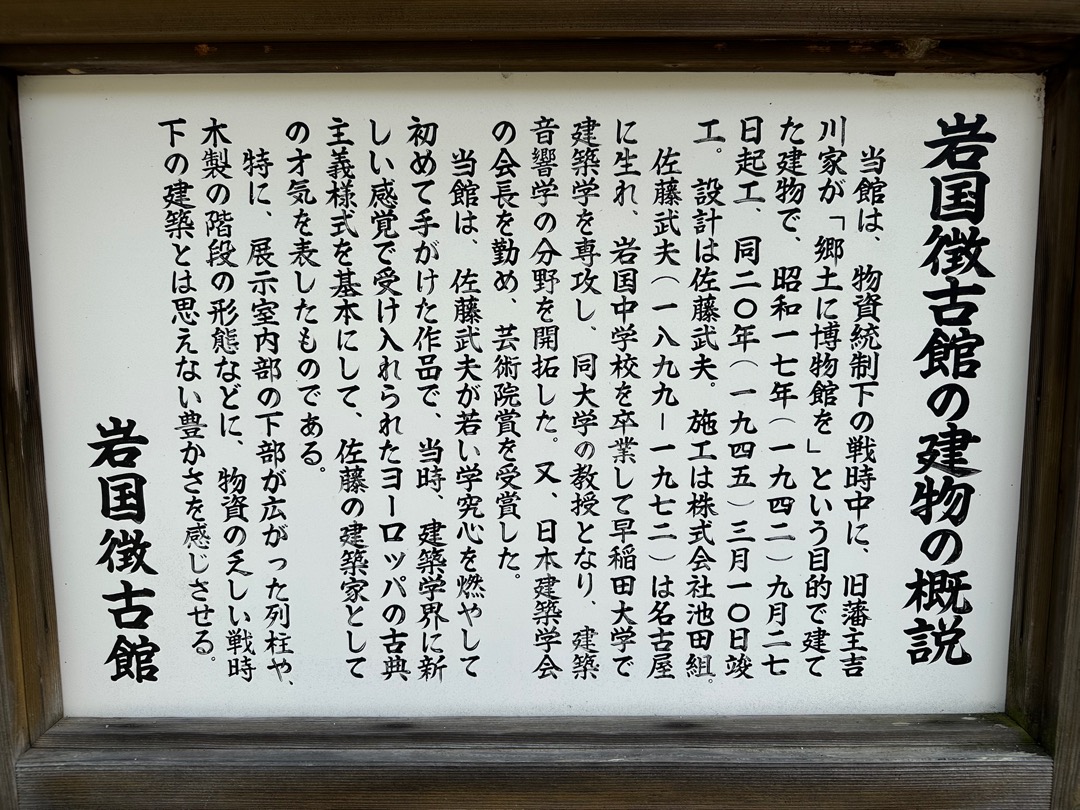 岩国徴古館の建物の概説
当館は、物資統制下の戦時中に、旧藩主吉
川家が「郷土に博物館を」という目的で建て
た建物で、昭和一七年(一九四二)九月二七
日起工、同二〇年(一九四五)三月一〇日竣
工。設計は佐藤武夫。施工は株式会社池田組。
佐藤武夫(一八九九－一九七二)は名古屋
に生れ、岩国中学校を卒業して早稲田大学で
建築学を専攻し、同大学の教授となり、建築
音響学の分野を開拓した。又、日本建築学会
の会長を勤め、芸術院賞を受賞した。
当館は、佐藤武夫が若い学究心を燃やして
初めて手がけた作品で、当時、建築学界に新
しい感覚で受け入れられたヨーロッパの古典
主義様式を基本にして、佐藤の建築家として
の才気を表したものである。
特に、展示室内部の下部が広がった列柱や、
木製の階段の形態などに、物資の乏しい戦時
下の建築とは思えない豊かさを感じさせる。
岩国徴古館